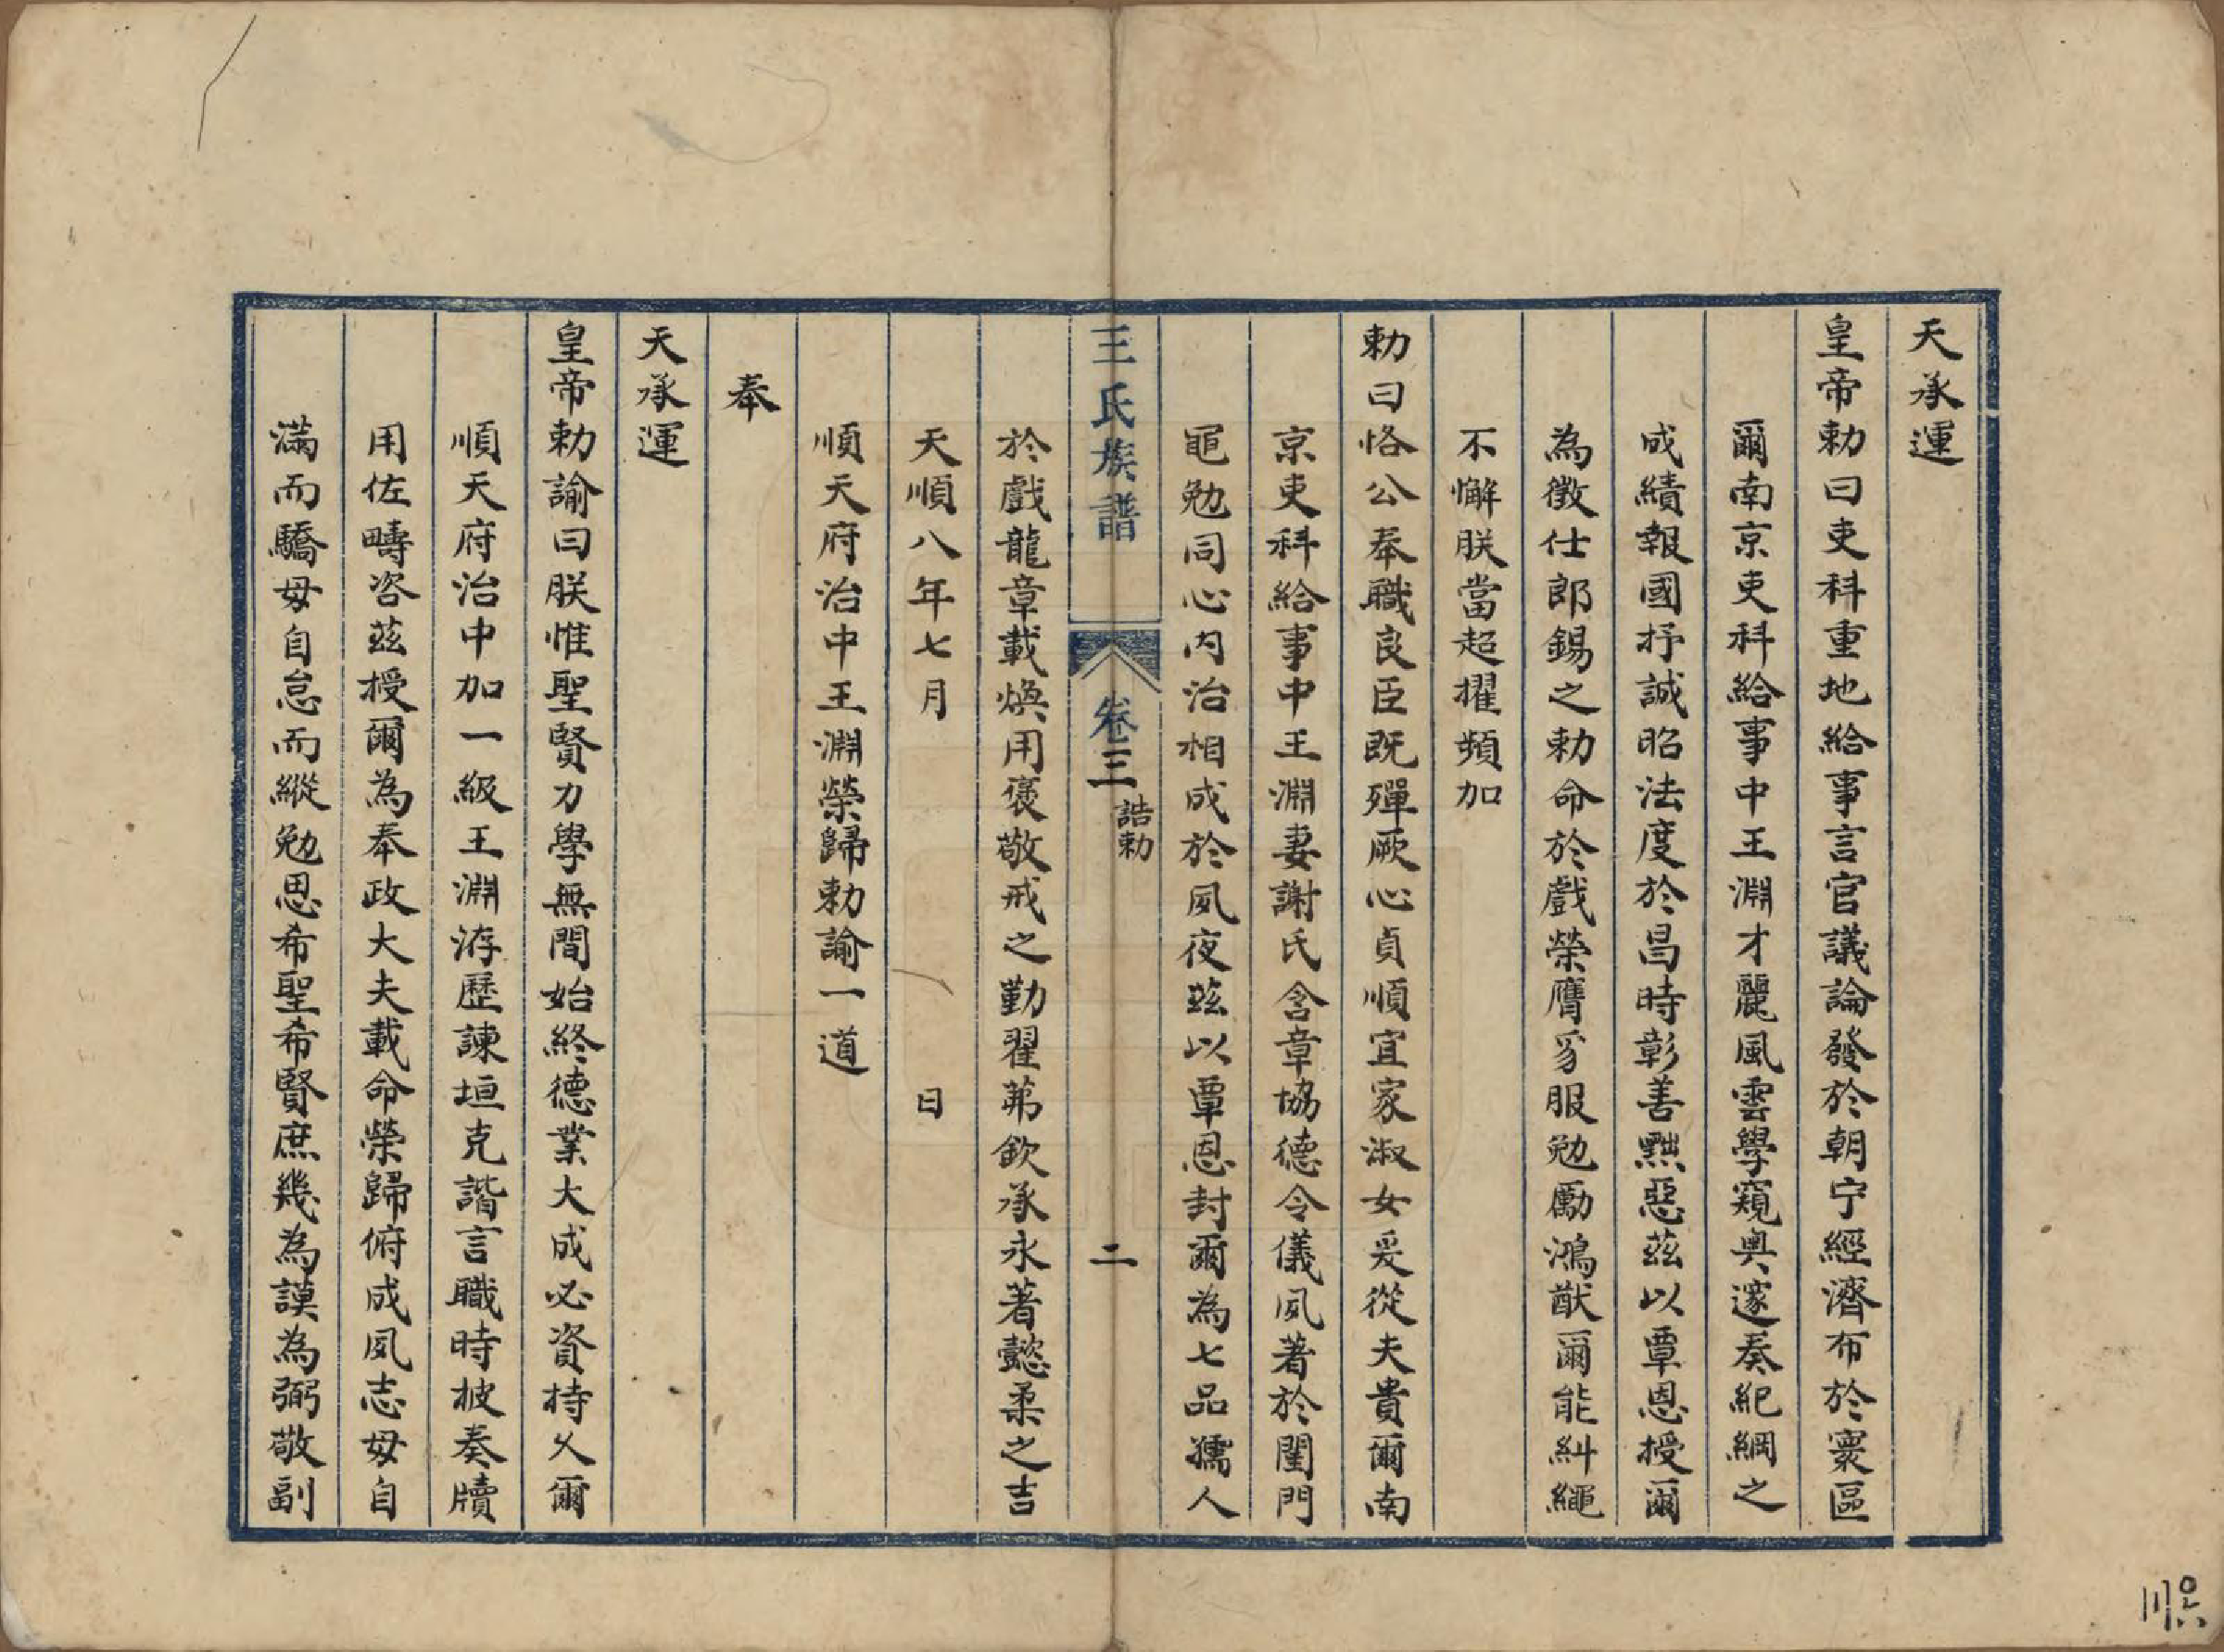 天承運
皇帝勅曰吏科重地給事言官議論發於朝宁經濟布於寰區
爾南京吏科給事中王淵才麗風雲學窺奥邃奏紀綱之
成績報國抒誠昭法度於昌時彰善黜惡茲以覃恩授爾
為徵仕郎錫之勅命於戲榮膺豸服勉勵鴻猷爾能糾繩
不懈朕當超擢頻加
勅曰恪公奉職良臣既殫厥心貞順宜家淑女爰從夫貴爾南
京吏科給事中王淵妻謝氏含章協德令儀夙著於閨門
黽勉同心内治相成於夙夜茲以覃恩封爾為七品孺人
於戲龍章載煥用褒敬戒之勤翟茀欽承永著懿柔之吉
天順八年七月　日
順天府治中王淵榮歸勅諭一道
奉
天承運
皇帝勅諭曰朕惟聖賢力學無間始終德業大成必資持久爾
順天府治中加一級王淵洊歷諫垣克諧言職時披奏牘
用佐疇咨茲授爾為奉政大夫載命榮歸俯成夙志毋自
滿而驕毋自怠而縱勉思希聖希賢庶幾為謨為弼敬副
王氏族譜
卷三
誥勅
二